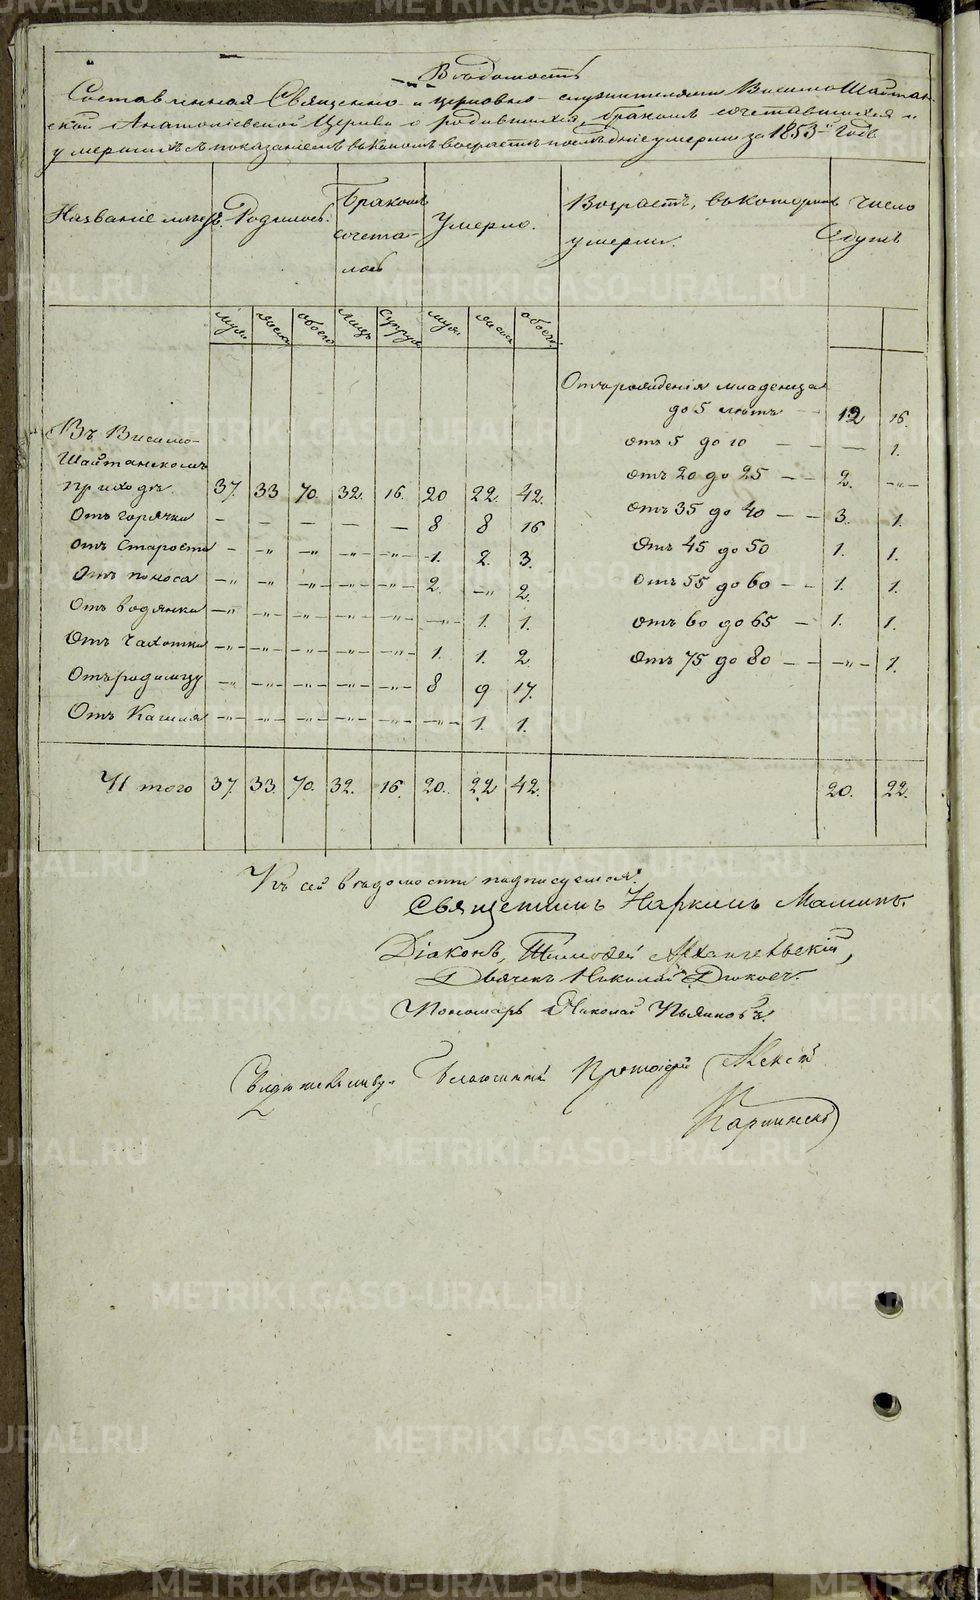 Вѣдомость
Составленная Священно- и церковно-служителями Висимо Шайтан-
ской Анатоліевской Церкви о родившихся, бракомъ сочетавшихся и
умершихъ съ показаніемъ въ какомъ возрастѣ послѣдніе умерли за 1853-й Годъ
Названіе мѣстъ. Родилось. Бракомъ сочета-лось Умерло. Возрастъ, въ которомъ умерли. Число Душъ
муж. женск. обоего лицъ супруж. муж. женск. обоего.
Отъ рожденія младенца
до 5 лѣтъ — 12 16.
отъ 5 до 10 — — 1.
отъ 20 до 25 — — 2. —„—
отъ 35 до 40 — — 3. 1.
Отъ 45 до 50 1. 1.
Отъ 55 до 60 — — 1. 1.
отъ 60 до 65 — 1. 1.
Отъ 75 до 80 — — —„— 1.
Въ Висимо-
Шайтанскомъ
приходѣ. 37. 33 70. 32. 16. 20 22. 42.
Отъ горячки — — — — — 8 8 16
отъ Старости — —„— —„— —„— —„— 1. 2. 3.
Отъ поноса —„— —„— —„— —„— —„— 2. —„— 2.
Отъ водянки —„— —„— —„— —„— —„— —„— 1. 1.
Отъ Чахотки —„— —„— —„— —„— —„— 1. 1. 2.
Отъ родимцу —„— —„— —„— —„— —„— 8 9 17.
Отъ Кашля —„— —„— —„— —„— —„— —„— 1. 1.
Итого 37. 33. 70. 32. 16. 20. 22 42. 20. 22.
Къ сей вѣдомости подписуемся:
Священникъ Наркисъ Маминъ.
Діаконъ, Тимофей Архангельскій,
Дьячекъ Николай Дюковъ.
Пономарь Николай Пьянковъ.
Благочинный Протоіерей Алексѣй
Карпинскій
METRIKI.GASO-URAL.RU